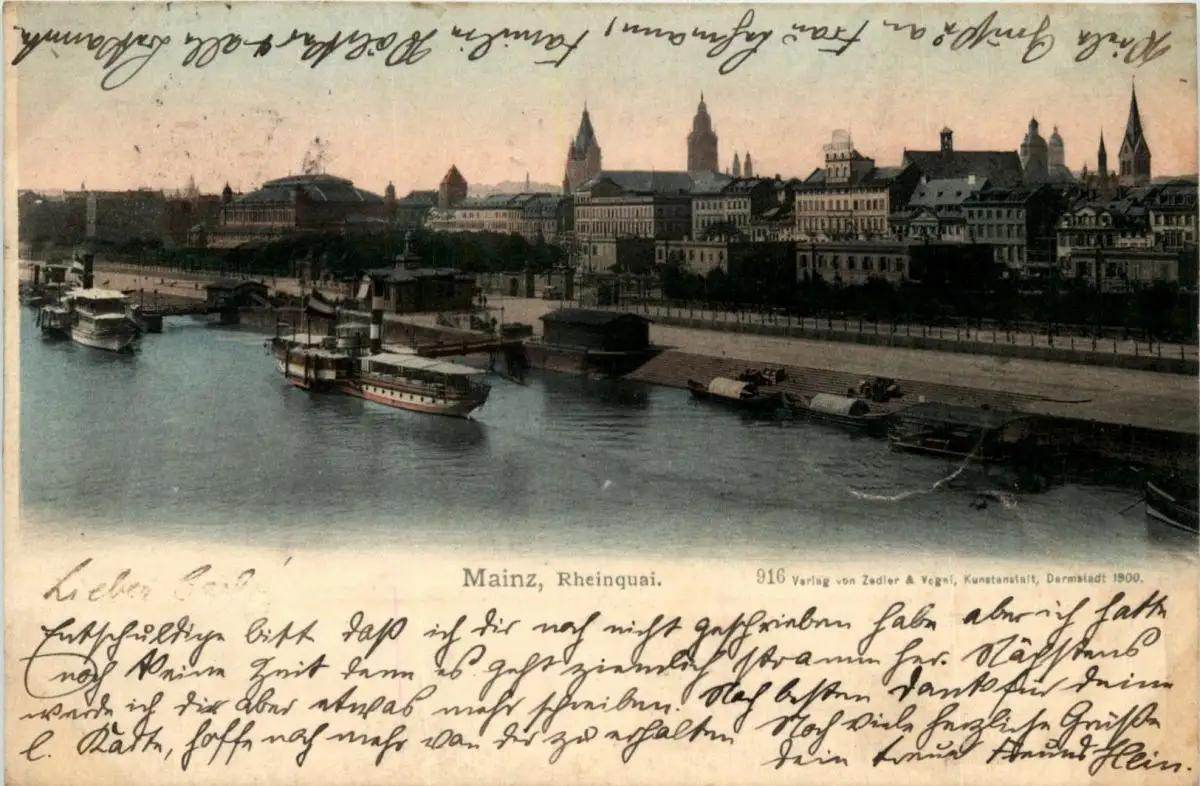 Viele Grüße an Frau Lehmann, Familie Wölker & alle Bekannte
Mainz, Rheinquai.
916 Verlag von Zedler & Vogel, Kunstanstalt, Darmstadt 1900.
Lieber
Entschuldige bitt daß ich dir noch nicht geschrieben habe aber ich hatte
noch keine Zeit denn es geht ziemlich stramm her. Nächstens
werde ich dir aber etwas mehr schreiben. Noch besten Dank für deine
l. Karte, hoffe noch mehr von dir zu erhalten Noch viele herzliche Grüße
dein treuer Freund Hein.